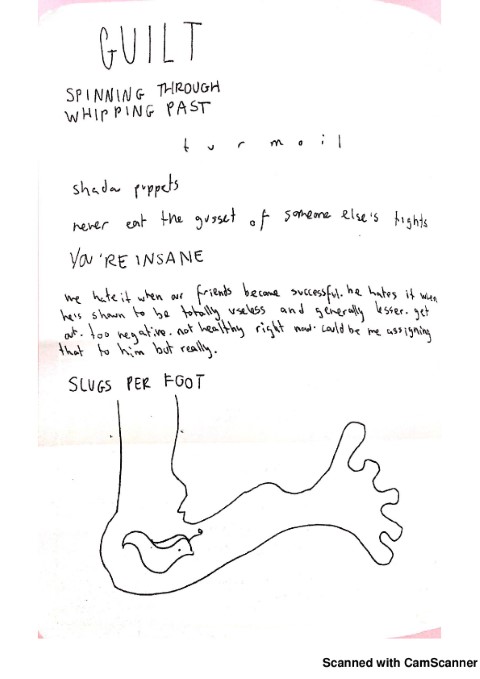 GUILT
SPINNING THROUGH
WHIPPING PAST
t u r m o i l
shadow puppets
never eat the gusset of someone else's tights
YOU'RE INSANE
we hate it when our friends become successful. he hates it when
he's shown to be totally useless and generally lesser. get
out. too negative. not healthy right now. could be me assigning
that to him but really.
SLUGS PER FOOT
Scanned with CamScanner